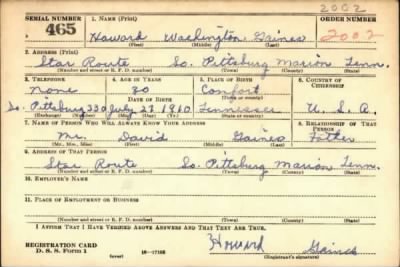 2002
SERIAL NUMBER 1. NAME (Print) ORDER NUMBER
465 Howard Washington Gaines 2002
(First) (Middle) (Last)
2. ADDRESS (Print)
Star Route So. Pittsburg Marion Tenn.
(Number and street or R. F. D. number) (Town) (County) (State)
3. TELEPHONE 4. AGE IN YEARS 5. PLACE OF BIRTH 6. COUNTRY OF CITIZENSHIP
None 30 Comfort
DATE OF BIRTH (Town or county)
So. Pittsburg 330 July 27 1910 Tennessee U. S. A.
(Exchange) (Number) (Mo.) (Day) (Yr.) (State or country)
7. NAME OF PERSON WHO WILL ALWAYS KNOW YOUR ADDRESS 8. RELATIONSHIP OF THAT PERSON
Mr. David Gaines Father
(Mr., Mrs., Miss) (First) (Middle) (Last)
9. ADDRESS OF THAT PERSON
Star Route So. Pittsburg Marion Tenn.
(Number and street or R. F. D. number) (Town) (County) (State)
10. EMPLOYER'S NAME
11. PLACE OF EMPLOYMENT OR BUSINESS
(Number and street or R. F. D. number) (Town) (County) (State)
I AFFIRM THAT I HAVE VERIFIED ABOVE ANSWERS AND THAT THEY ARE TRUE.
REGISTRATION CARD Howard Gaines
D. S. S. Form 1 (over) (Registrant's signature)